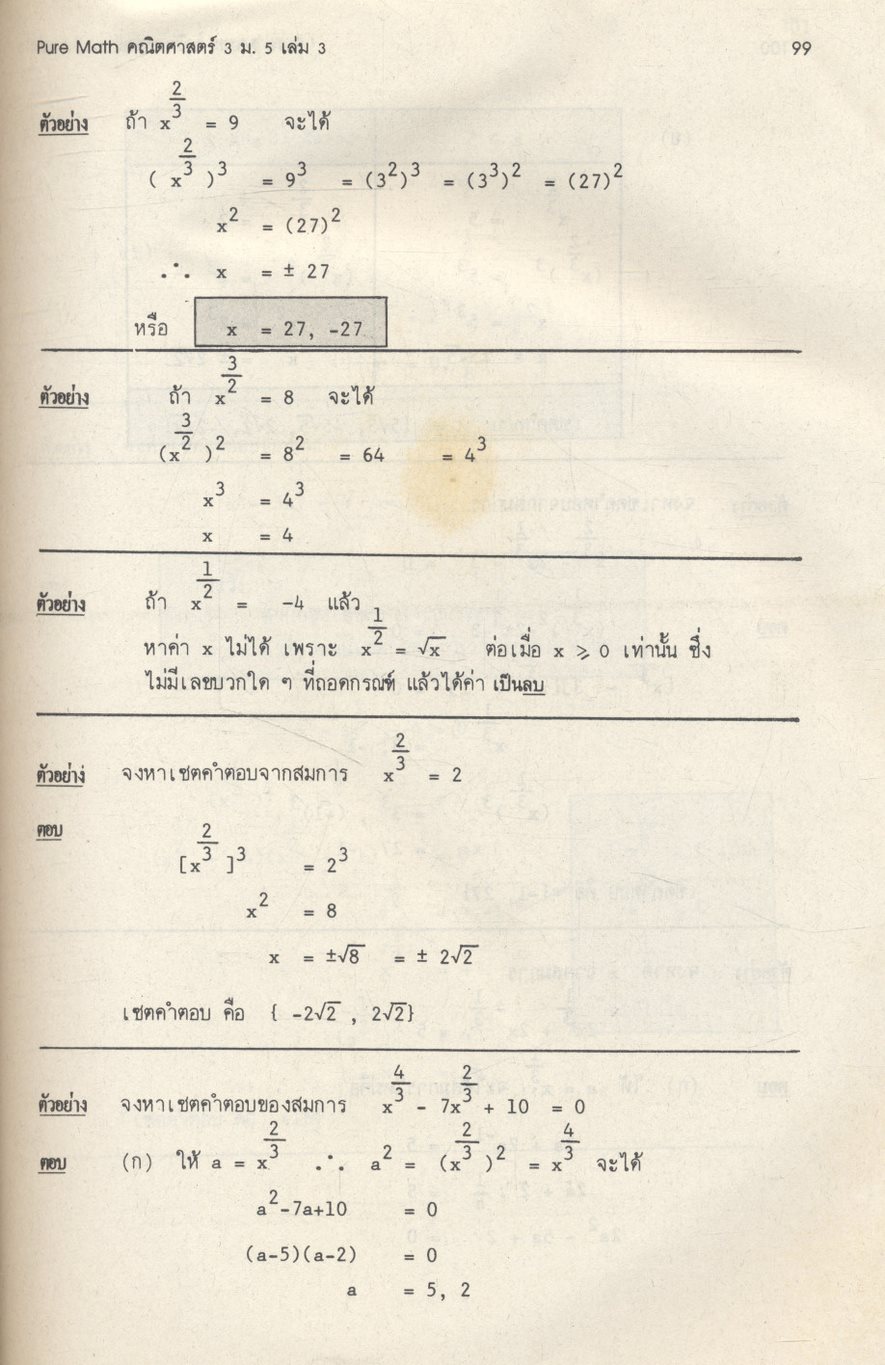 Pure Math คณิตศาสตร์ 3 ม. 5 เล่ม 3 99
ตัวอย่าง ถ้า x^(2/3) = 9 จะได้
(x^(2/3))^3 = 9^3 = (3^2)^3 = (3^3)^2 = (27)^2
x^2 = (27)^2
∴ x = ± 27
หรือ x = 27, -27
ตัวอย่าง ถ้า x^(3/2) = 8 จะได้
(x^(3/2))^2 = 8^2 = 64 = 4^3
x^3 = 4^3
x = 4
ตัวอย่าง ถ้า x^(1/2) = -4 แล้ว
หาค่า x ไม่ได้ เพราะ x^(1/2) = √x ต่อเมื่อ x ⩾ 0 เท่านั้น ซึ่ง
ไม่มีเลขบวกใด ๆ ที่ถอดกรณฑ์ แล้วได้ค่า เป็นลบ
ตัวอย่าง จงหาเซตคำตอบจากสมการ x^(2/3) = 2
ตอบ
[x^(2/3)]^3 = 2^3
x^2 = 8
x = ±√8 = ± 2√2
เซตคำตอบ คือ { -2√2 , 2√2}
ตัวอย่าง จงหาเซตคำตอบของสมการ x^(4/3) - 7x^(2/3) + 10 = 0
ตอบ (ก) ให้ a = x^(2/3) ∴ a^2 = (x^(2/3))^2 = x^(4/3) จะได้
a^2-7a+10 = 0
(a-5)(a-2) = 0
a = 5, 2